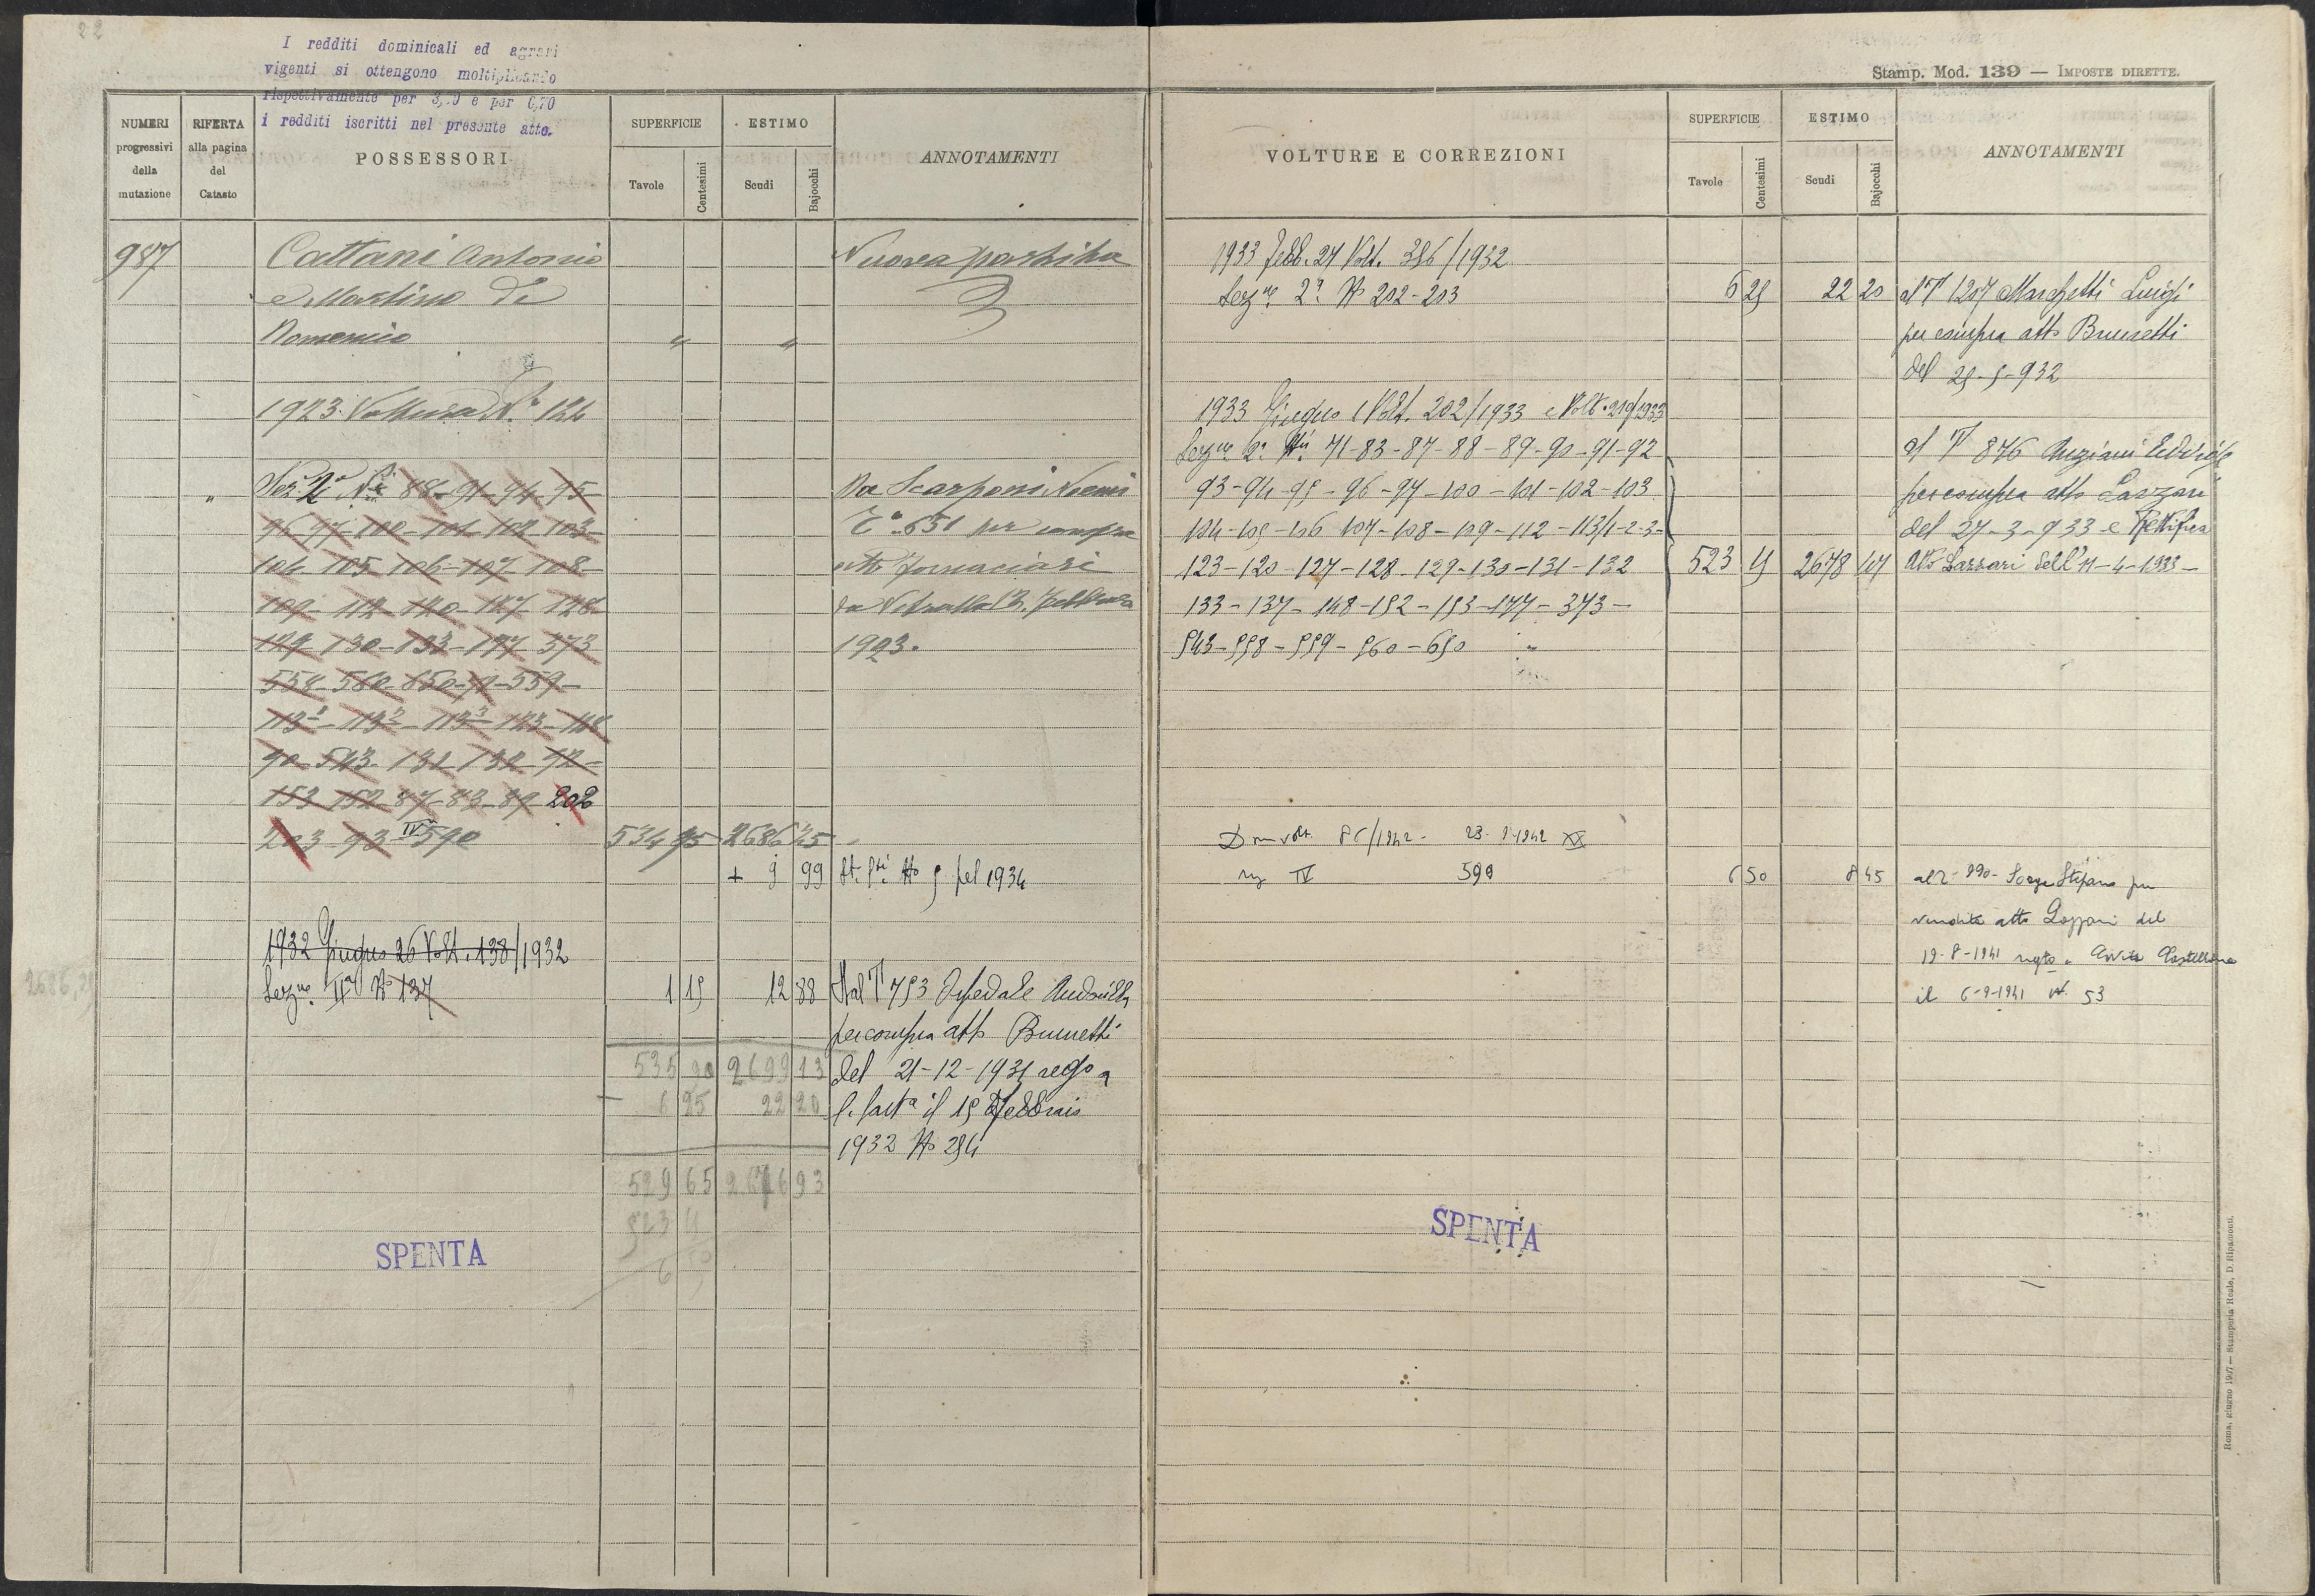 22
I redditi dominicali ed agrari
vigenti si ottengono moltiplicando
rispettivamente per 3,.0 e per 0,70
i redditi iscritti nel presente atto.
Stamp. Mod. 139 — IMPOSTE DIRETTE.
NUMERI progressivi della mutazione
RIFERTA alla pagina del Catasto
POSSESSORI
SUPERFICIE
Tavole
Centesimi
ESTIMO
Scudi
Bajocchi
ANNOTAMENTI
987
Cattani Antonio
e Martino di
Domenico " "
Nuova partita
1923. Voltura N.° 124
" Sez 2ª Ni 88-91-94-95-
96-97-100-101-102-103-
104-105-106-107-108-
109-112-120-127-128-
129-130-133-177-373
558-560-650-71-559-
113¹-113²-113³-123-148
90-543-131-132-92-
153-152-87-83-89-202
203-93-IV 590 534 95 2686 25
Da Scarponi Noemi
T° 651 per compra
atto Fornaciari
da Vetralla
1923.
+ 9 99 No 5 pel 1934
1932 Giugno 26 Volt. 138/1932
Sezne IIª No 137 1 15 12 88 Dal T 753 Ospedale
per compra atto Brunetti
del 21-12-1931 rego a
C. Cast.a il 15 Febbraio
1932 No 254
2686,25
535 90 2699 13
- 6 25 22 20
529 65 2676 93
523 15
6 50
SPENTA
VOLTURE E CORREZIONI
SUPERFICIE
Tavole
Centesimi
ESTIMO
Scudi
Bajocchi
ANNOTAMENTI
1933 Febb. 27 Volt. 386/1932
Sezne 2ª No 202-203 6 25 22 20 al T 1207 Marchetti Luigi
per compra atto Brunetti
del 25-5-932
1933 Giugno 1 Volt. 202/1933 e Volt. 219/1933
Sezne 2ª Ni 71-83-87-88-89-90-91-92
93-94-95-96-97-100-101-102-103
104-105-106-107-108-109-112-113/1-2-3-
123-120-127-128-129-130-131-132 523 15 2678 47
133-137-148-152-153-177-373-
543-558-559-560-650 "
al T 876 Anziani Edvige
per compra atto Lazzari
del 27-3-933 e Rettifica
Atto Lazzari dell'11-4-1933-
Dom volt. 86/1942 - 23-9-1942 XX
sez IV 590 6 50 8 45
al T 990 - Stefano per
vendita atto Lazzari del
19-8-1941 regto a Civita Castellana
il 6-9-1941 N. 53
SPENTA
Roma, giugno 1917 — Stamperia Reale, D. Ripamonti.